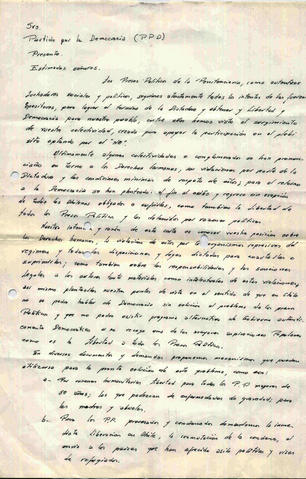 Sres
Partido por la Democracia (P.P.D)
Presente.
Estimados señores.
Los Presos Políticos de la Penitenciaría, como auténticos
luchadores sociales y políticos, seguimos atentamente todos los intentos de las fuerzas
opositoras, para lograr el término de la Dictadura y obtener la Libertad y
Democracia para nuestro pueblo, entre ellas hemos visto el surgimiento
de vuestra colectividad, creada para apoyar la participación en el plebi-
cito optando por el "NO".
Ultimamente algunas colectividades se han pronun-
ciado en torno a los Derechos Humanos, sus violaciones por parte de la
Dictadura y las condiciones mínimas de respeto de ellos, para el retorno
a la Democracia se han planteado: el fin al exilio y regreso sin excepción
de todos los chilenos, como también la Libertad de
todos los Presos Políticos y los detenidos por razones políticas.
vuestra posición sobre
los Derechos Humanos, la violación de ellos por los organismos represivos del
régimen, y todas las disposiciones y leyes dictadas para
como también las responsabilidades y las sanciones
legales a los autores tanto materiales como intelectuales de estas violaciones,
así mismo plantearles nuestro punto de vista en el sentido de que en Chile
no se podrá hablar de Democracia sin solución al problema de los presos
Políticos y que no podrá existir programa alternativo de Gobierno autenti-
camente Democrático si no recoge una de las mayores aspiraciones Populares
como es la Libertad a todos los Presos Políticos.
En diversos documentos y demandas proponemos mecanismos que puedan
utilizarse para la pronta solución de este problema, como son:
a- Por razones humanitarias libertad para todos los P.P mayores de
50 años; los que padezcan de enfermedades de gravedad; para
las madres y abuelas.
b- Para los P.P. procesados y condenados demandamos la inme-
diata liberación en Chile, la conmutación de la condena, el
envío a los países que han ofrecido asilo político y visas
de refugiados.